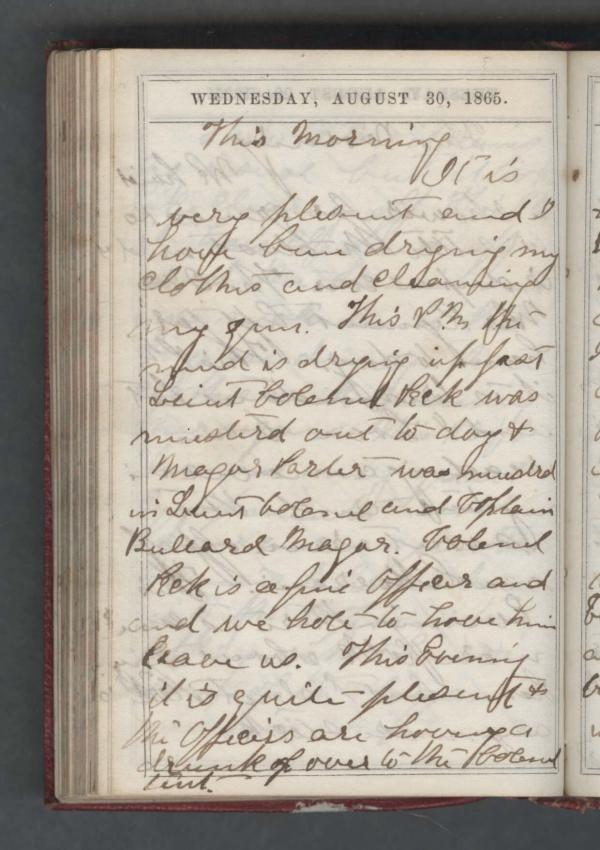 WEDNESDAY, AUGUST 30, 1865.
This Morning
It is
very plesent and I
have bun drying my
Clothes and Cleaning
my gun. This P.M the
mud is drying up fast
Leiut Colenel Peck was
musterd out to day &
Magor Parter was musterd
in Leiut Colenel and Captain
Bullard Magor. Colenel
Peck is a fine Officer and
and we hate to have him
leave us. This Evening
it is quite plesent &
the Officers are having a
drunk of over to the Colenel
tent.